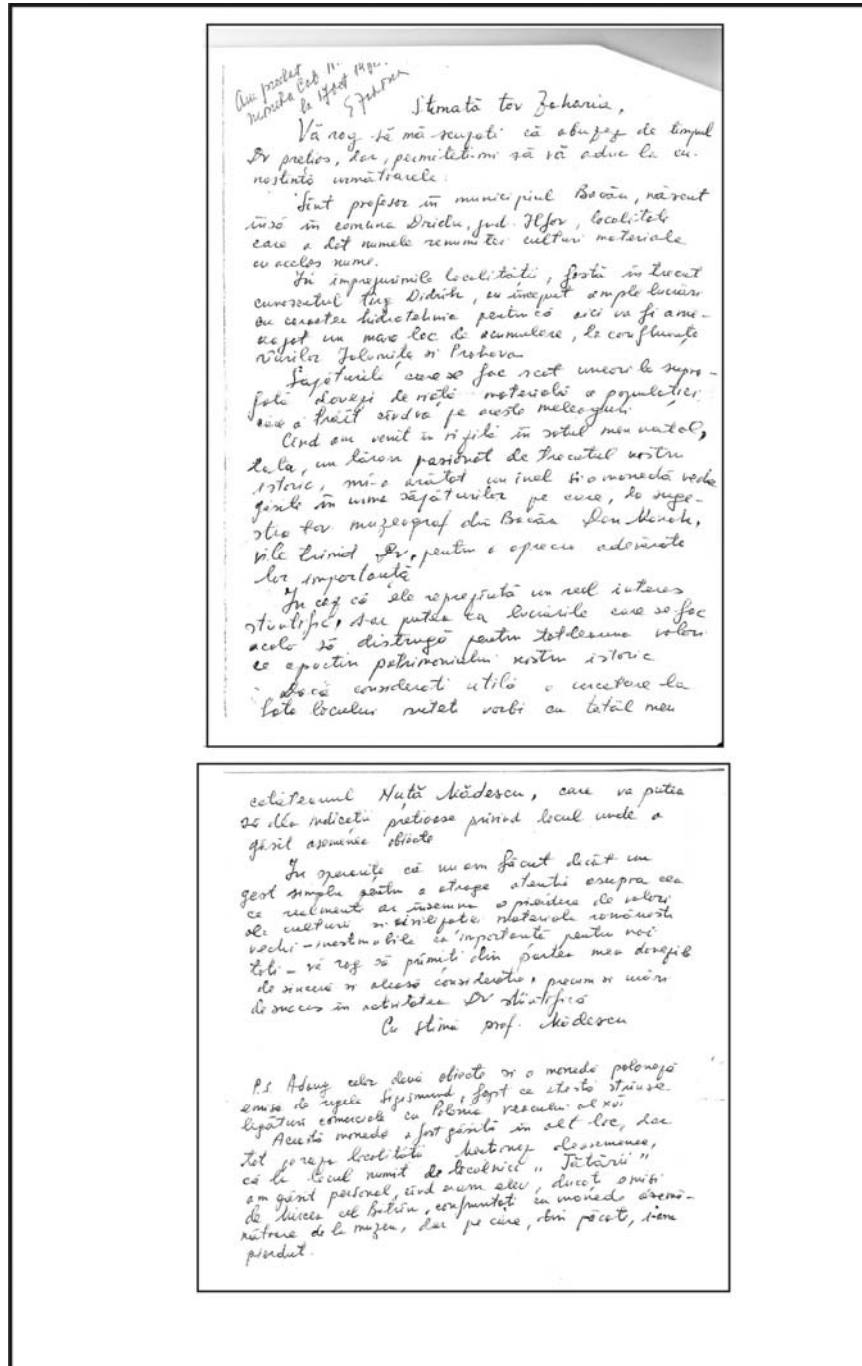 Am predat
moneda Cab. N.
la 17 oct 19
E Zaharia
Stimată tov Zaharia,
Vă rog să mă scuzați că abuzez de timpul
Dv prețios, dar, permiteți-mi să vă aduc la cu-
noștință următoarele:
Sînt profesor în municipiul Bacău, născut
însă în comuna Dridu, jud. Ilfov, localitate
care a dat numele renumitei culturi materiale
cu același nume.
În împrejurimile localității, fostă în trecut
cunoscutul tîrg Didrih, au început ample lucrări
cu caracter hidrotehnic pentru că aici va fi ame-
najat un mare loc de acumulare, la confluența
rîurilor Ialomița și Prahova
Săpăturile care se fac scot uneori la supra-
față dovezi de viață materială a populației
care a trăit cîndva pe aceste meleaguri
Cînd am venit în vizită în satul meu natal,
tata, un țăran pasionat de trecutul nostru
istoric, mi-a arătat un inel și o monedă veche
găsite în urma săpăturilor pe care, la suge-
stia tov. muzeograf din Bacău Dan
vi le trimit Dv, pentru a aprecia adevărata
lor importanță
În caz că ele reprezintă un real interes
științific, s-ar putea ca lucrările care se fac
acolo să distrugă pentru totdeauna valori
ce aparțin patrimoniului nostru istoric
Dacă considerați utilă o cercetare la
fața locului puteți vorbi cu tatăl meu
cetățeanul Nuță Mădescu, care va putea
să dea indicații prețioase privind locul unde a
găsit asemenea obiecte
În speranța că nu am făcut decît un
gest simplu pentru a atrage atenția asupra cea
ce realmente ar însemna o pierdere de valori
ale culturii și civilizației materiale românești
vechi - inestimabile ca importanță pentru noi
toți - vă rog să primiți din partea mea dovezile
de sinceră și aleasă considerație, precum și urări
de succes în activitatea Dv științifică
Cu stimă prof. Mădescu
P.S. Adaug celor două obiecte și o monedă poloneză
emisă de regele Sigismund, fapt ce atestă strînse
legături comerciale cu Polonia veacului al XVI
Această monedă a fost găsită în alt loc, dar
tot pe raza localității Menționez deasemenea,
că la locul numit de localnici „Tătărîi"
am găsit personal, cînd eram elev, ducat emis
de Mircea cel Bătrîn, confruntat cu moneda asemă-
nătoare de la muzeu, dar pe care, din păcate, l-am
pierdut.